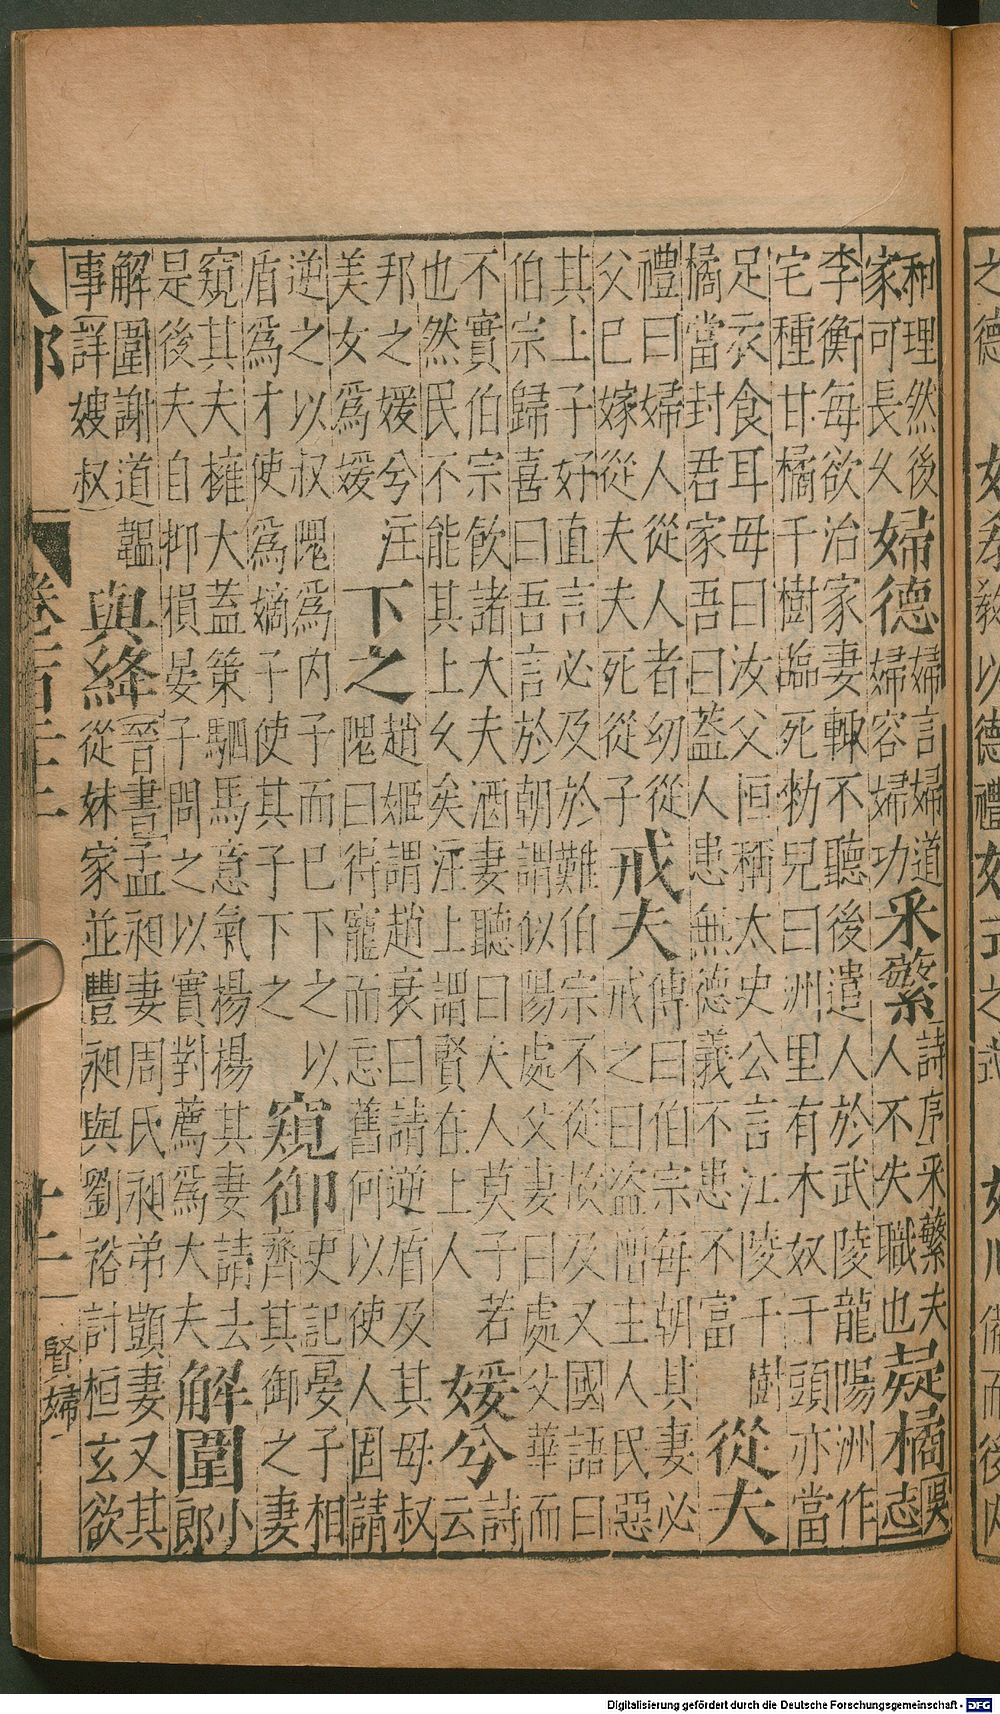 和理然後家可長久 婦德 婦言婦道婦容婦功 采蘩 詩序采蘩夫人不失職也 疑橘 吳志
李衡每欲治家妻輒不聽後遣人於武陵龍陽洲作
宅種甘橘千樹臨死勑兒曰洲里有木奴千頭亦當
足衣食耳母曰汝父恒稱太史公言江陵千樹
橘當封君家吾曰蓋人患無德義不患不富 從夫
禮曰婦人從人者幼從父已嫁從夫夫死從子 戒夫 傳曰伯宗每朝其妻必戒之曰盜憎主人民惡
其上子好直言必及於難伯宗不從故及又國語曰
伯宗歸喜曰吾言於朝謂似陽處父妻曰處父華而
不實伯宗飲諸大夫酒妻聽曰大人莫子若
也然民不能其上久矣注上謂賢在上人 媛兮 詩云
邦之媛兮注美女爲媛 下之 趙姬謂趙衰曰請逆盾及其母叔隗曰得寵而忘舊何以使人固請
逆之以叔隗爲內子而已下之以盾爲才使爲嫡子使其子下之 窺御 史記晏子相齊其御之妻
窺其夫擁大蓋策駟馬意氣揚揚其妻請去
是後夫自抑損晏子問之以實對薦爲大夫 解圍 小郎
解圍謝道韞事詳嫂叔 與絳 晉書孟昶妻周氏昶弟顗妻又其從妹家並豐昶與劉裕討桓玄欲
賢婦一
Digitalisierung gefördert durch die Deutsche Forschungsgemeinschaft - DFG